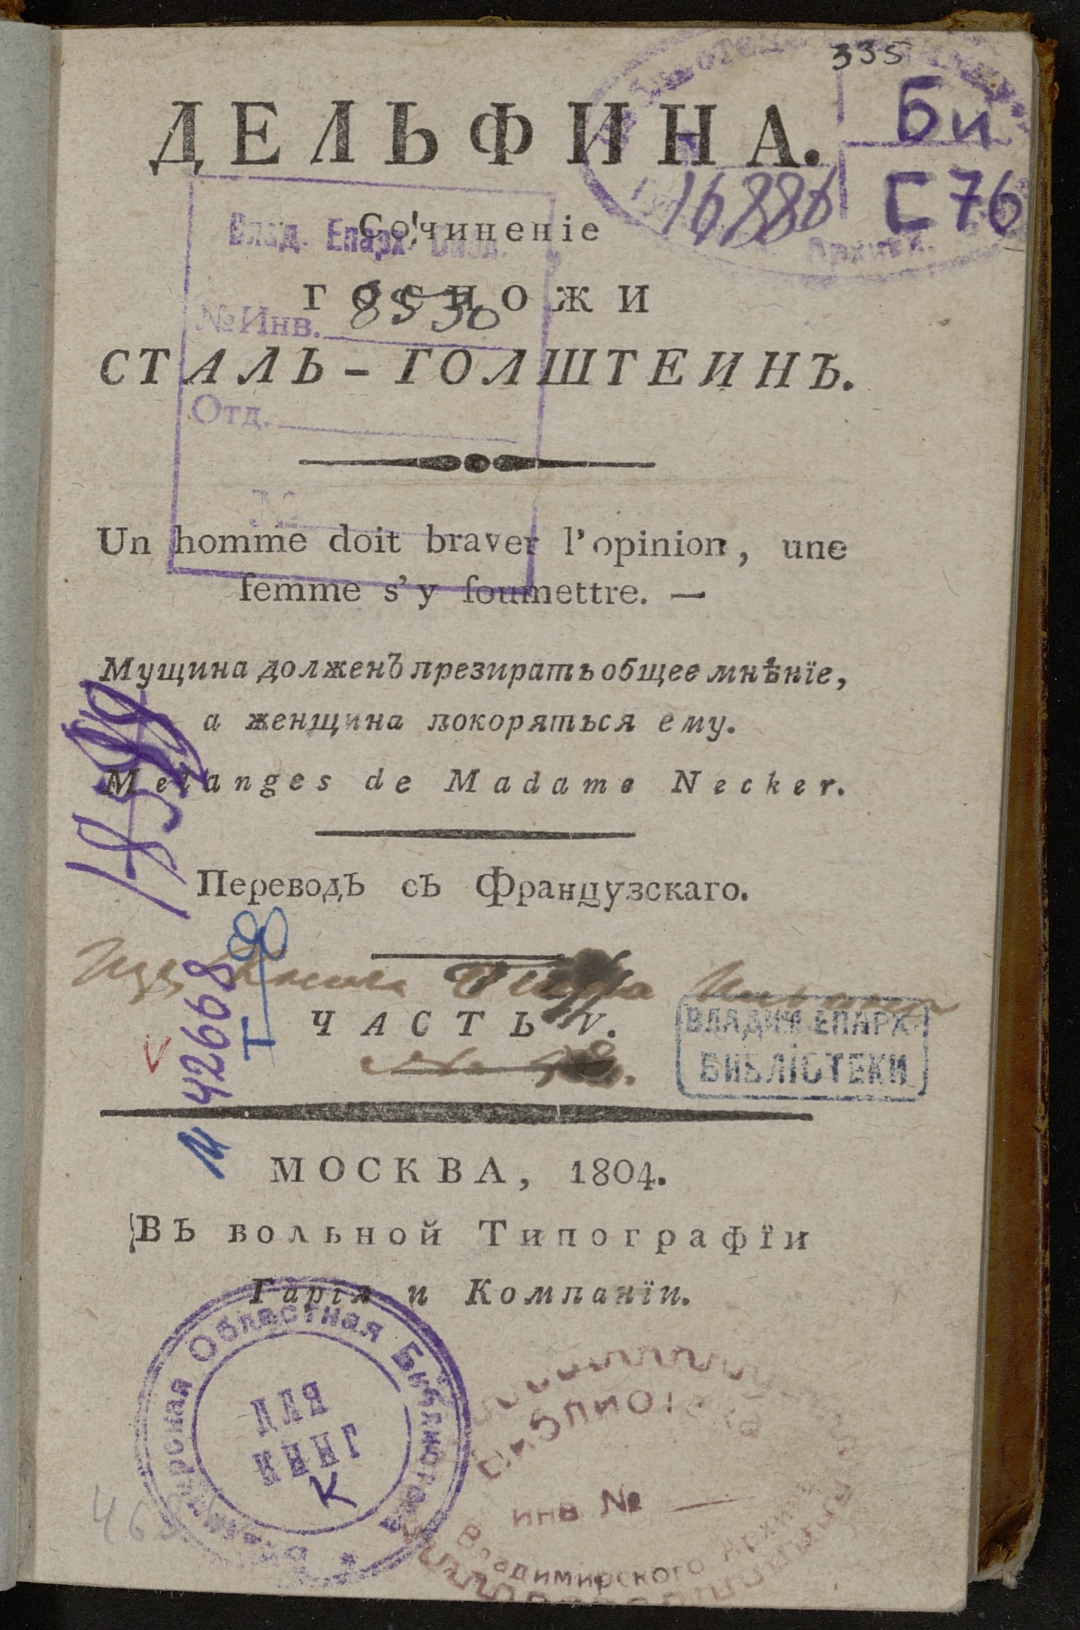 335
Би
С 76
16886
ДЕЛЬФИНА.
Влад. Епарх.
Сочиненіе
госножи
№ Инв. 8530
СТАЛЬ - ГОЛШТЕИНЪ.
Отд.
№
Un homme doit braver l'opinion, une
femme s'y soumettre. —
Мущина долженъ презирать общее мнѣніе,
а женщина покоряться ему.
Melanges de Madame Necker.
Переводъ съ Французскаго.
ЧАСТЬ V.
ВЛАДИМ. ЕПАРХ.
БИБЛІОТЕКИ
V
М 42668
МОСКВА, 1804.
Въ вольной Типографїи
Гарія и Компанїи.
Владимирская Областная Библиотека
ДЛЯ
КНИГ
К
Библиотека
инв №
Владимирского